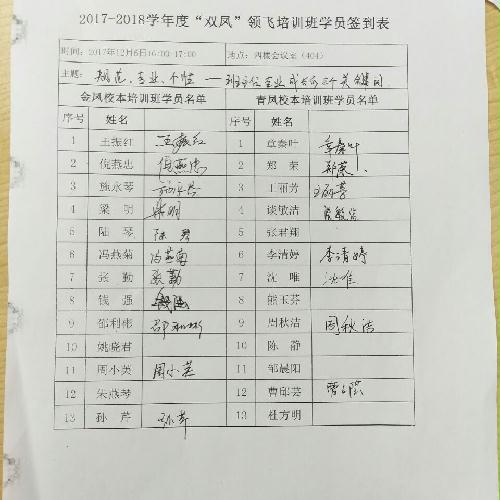 2017-2018学年度“双凤”领飞培训班学员签到表
时间：2017年12月6日16:00-17:00 地点：四楼会议室（404）
主题：规范、专业、个性——班主任专业成长的三个关键词
金凤校本培训班学员名单 青凤校本培训班学员名单
序号 姓名 序号 姓名
1 王振红 王振红 1 章春叶 章春叶
2 倪燕忠 倪燕忠 2 郑荣 郑荣
3 施永琴 施永琴 3 王丽芳 王丽芳
4 梁明 梁明 4 谈敏洁 谈敏洁
5 陆琴 陆琴 5 张君翔
6 冯燕菊 冯燕菊 6 李清婷 李清婷
7 张勤 张勤 7 沈唯 沈唯
8 钱强 钱强 8 熊玉芬
9 邵利彬 邵利彬 9 周秋洁 周秋洁
10 姚晓君 10 陈静
11 周小英 周小英 11 邹晨阳
12 朱燕琴 12 曹郋芸
13 孙芹 孙芹 13 杜方明